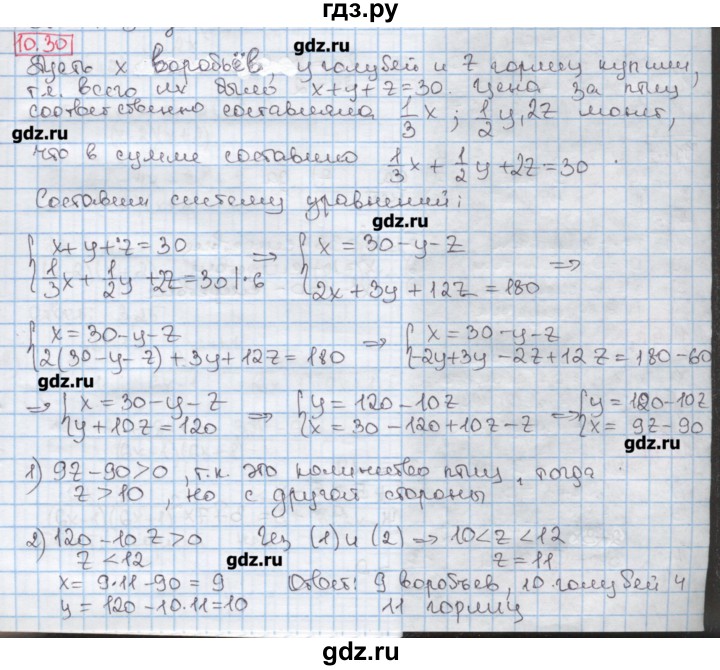 гдз.ру
10.30
Пусть x воробьёв, y голубей и z горлиц купили,
т.е. всего их было x+y+z=30. Цена за птиц
соответственно составляла 1/3 x; 1/2 y, 2z монет,
что в сумме составило 1/3 x + 1/2 y + 2z = 30
Составим систему уравнений:
{ x+y+z=30 { 1/3 x + 1/2 y + 2z = 30 |·6 ⇒ { x = 30-y-z { 2x+3y+12z=180 ⇒
{ x = 30-y-z { 2(30-y-z)+3y+12z=180 ⇒ { x = 30-y-z { -2y+3y-2z+12z=180-60
⇒ { x = 30-y-z { y+10z=120 ⇒ { y = 120-10z { x = 30-120+10z-z ⇒ { y = 120-10z { x = 9z-90
1) 9z-90>0, т.к. это количество птиц, тогда
z>10, но с другой стороны
2) 120-10z>0 Из (1) и (2) ⇒ 10<z<12
z<12 z=11
x = 9·11-90 = 9 Ответ: 9 воробьев, 10 голубей и
y = 120-10·11=10 11 горлиц
gdz.ru
gdz.ru
gdz.ru
gdz.ru
gdz.ru
gdz.ru
gdz.ru